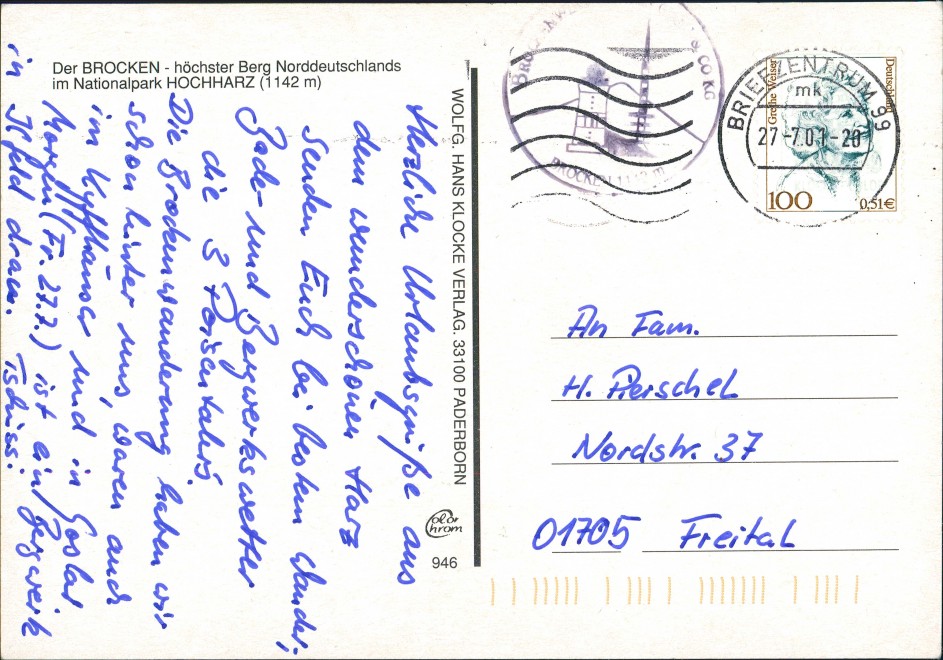 Der BROCKEN - höchster Berg Norddeutschlands
im Nationalpark HOCHHARZ (1142 m)
Herzliche Urlaubsgrüße aus
dem wunderschönen Harz
senden Euch bei bestem Wander-,
Bade- und Bergwerkswetter
die 3
Die Brockenwanderung haben wir
schon hinter uns, waren auch
im Kyffhäuser und in Goslar
Morgen (Fr. 27.7.) ist ein Bergwerk
in Ilfeld dran. Tschüss!
WOLFG. HANS KLOCKE VERLAG. 33100 PADERBORN
Color
chrom
946
BROCKEN 1142 m
& CO KG
BRIEFZENTRUM 99
mk
27.-7.01-20
Grethe Weiser
Deutschland
100
0,51€
An Fam.
H. Pierschel
Nordstr. 37
01705 Freital